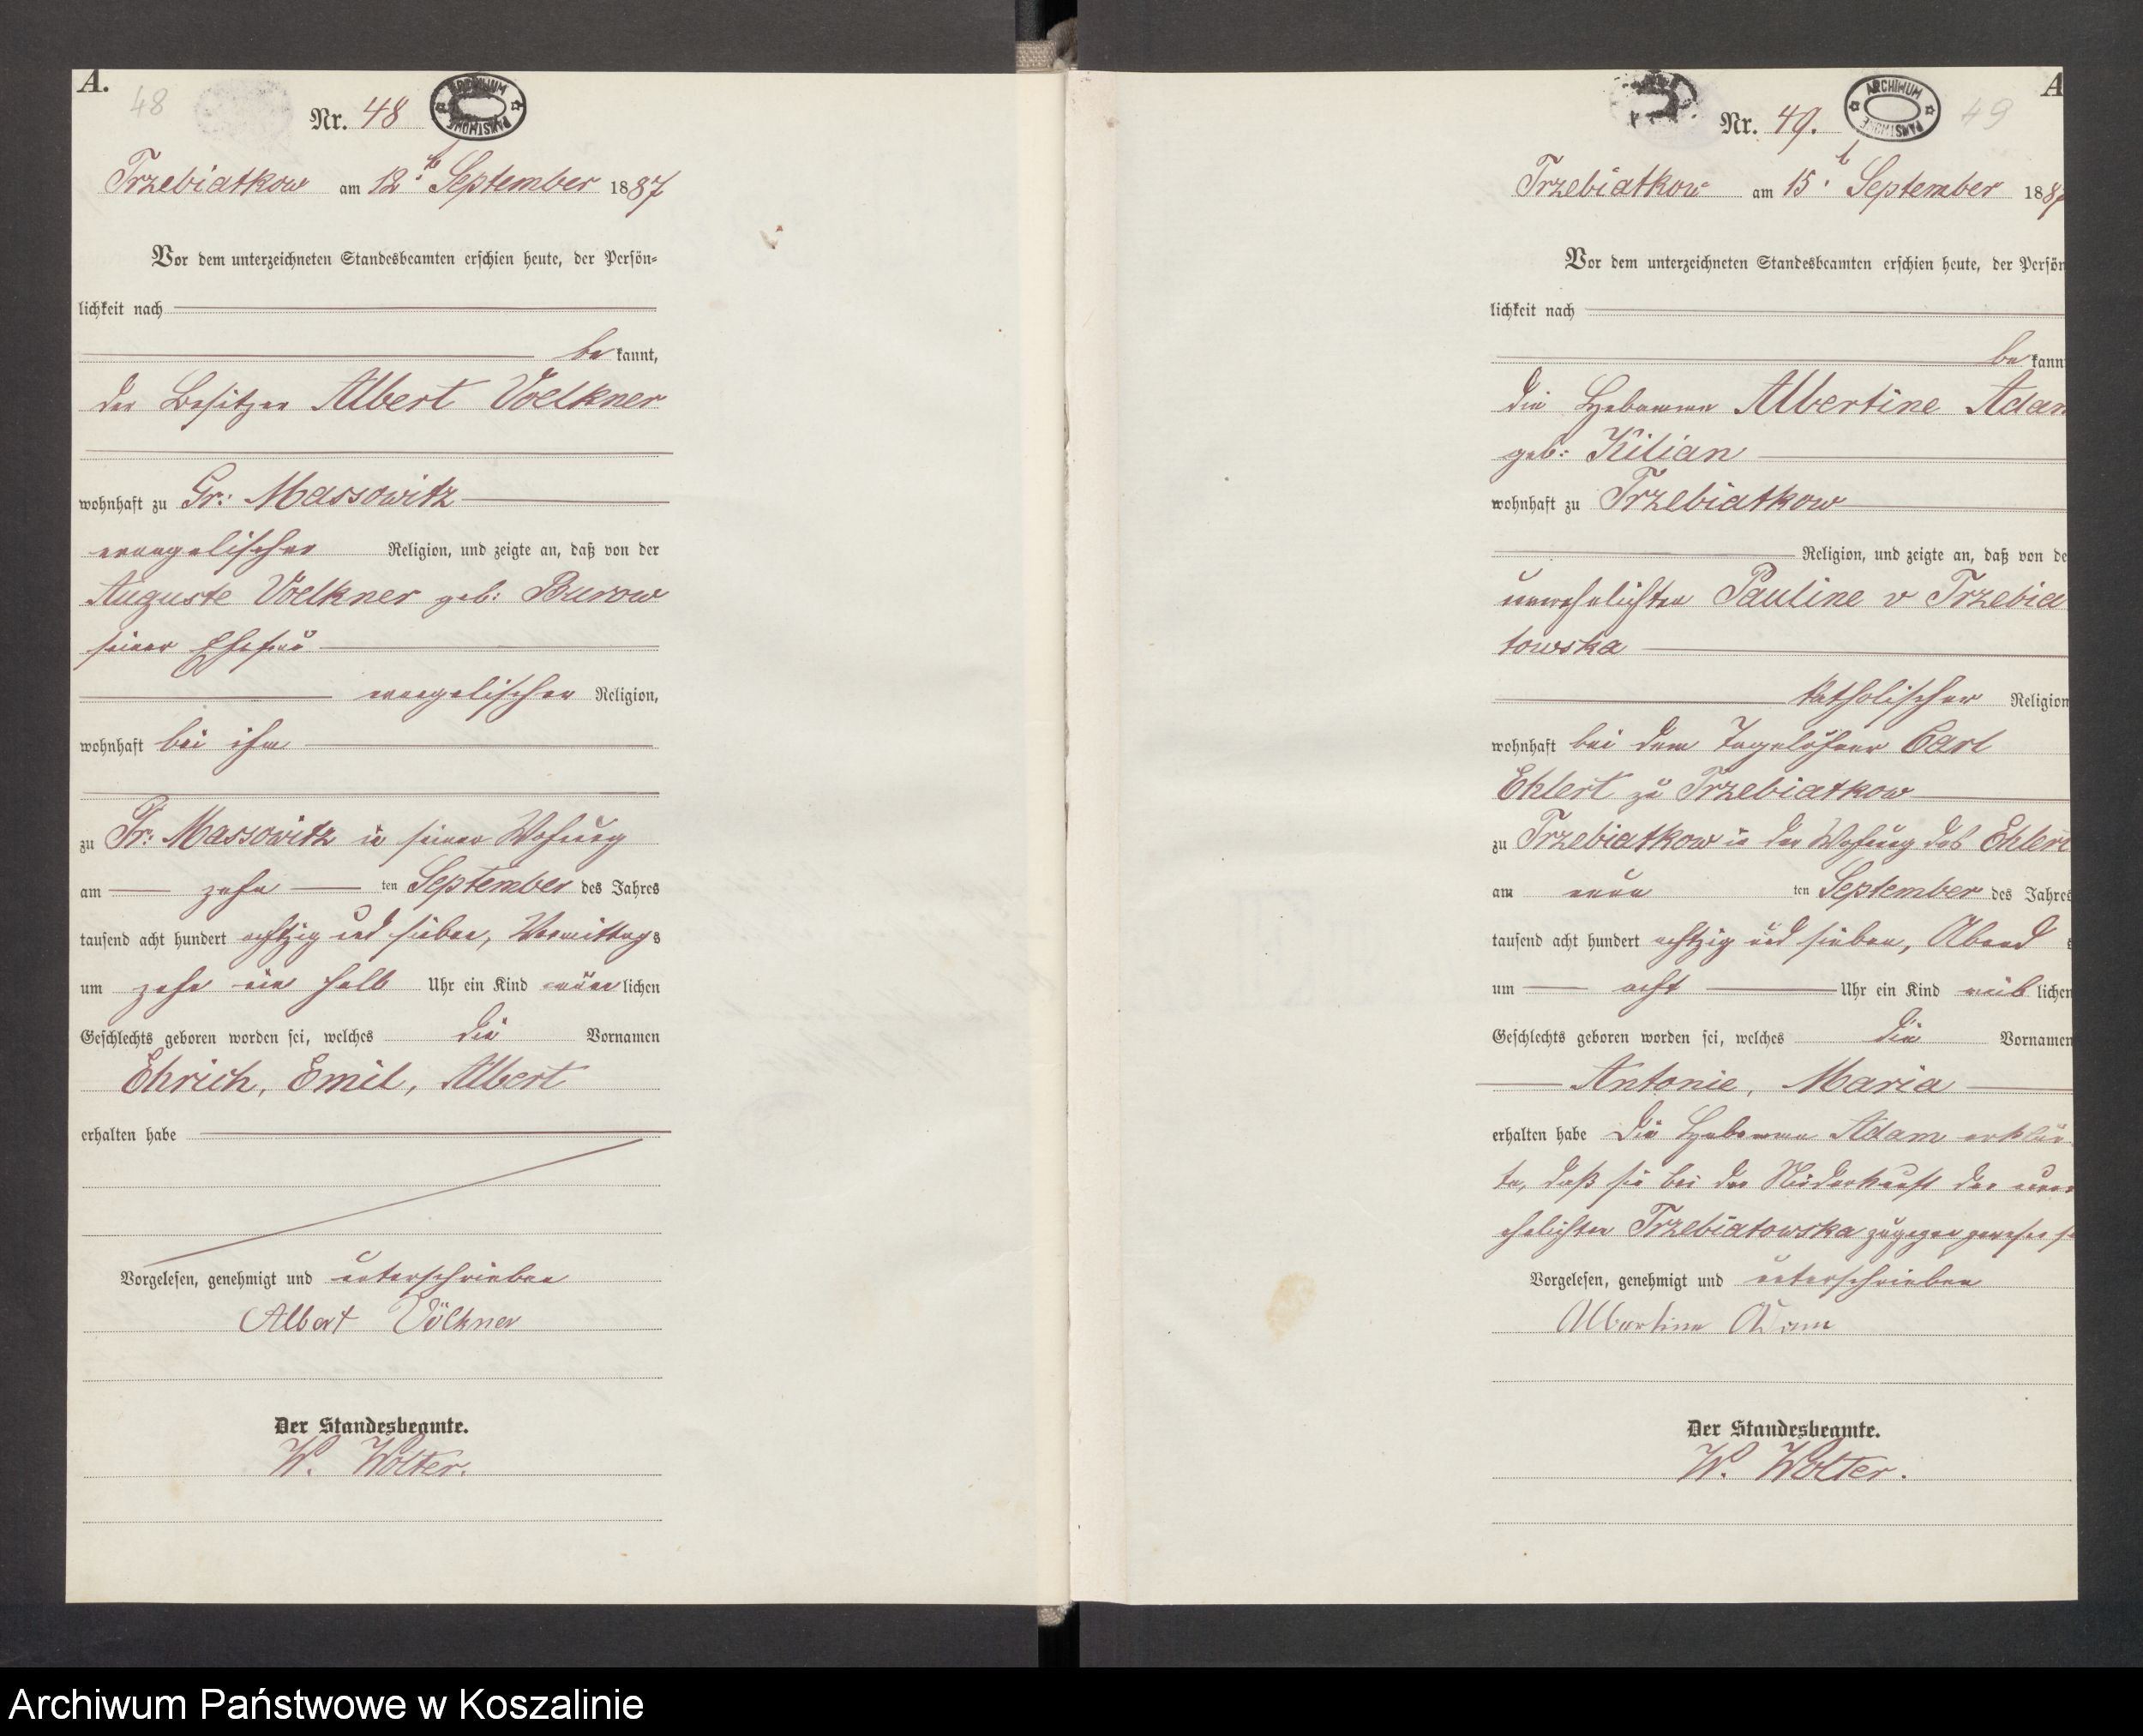 A.
48
Nr. 48
ARCHIWUM PAŃSTWOWE
Trzebiatkow am 12t September 1887
Vor dem unterzeichneten Standesbeamten erschien heute, der Persön-
lichkeit nach
be kannt,
der Besitzer Albert Voelkner
wohnhaft zu Gr: Massowitz
evangelischer Religion, und zeigte an, daß von der
Auguste Voelkner geb: Burow
seiner Ehefrau
evangelischer Religion,
wohnhaft bei ihm
zu Gr: Massowitz in seiner Wohnung
am zehn ten September des Jahres
tausend acht hundert achtzig und sieben, Vormittags
um zehn ein halb Uhr ein Kind männ lichen
Geschlechts geboren worden sei, welches die Vornamen
Ehrich, Emil, Albert
erhalten habe
Vorgelesen, genehmigt und unterschrieben
Albert Völkner
Der Standesbeamte.
W. Wolter.
A
Nr. 49.
ARCHIWUM PAŃSTWOWE
49
Trzebiatkow am 15t September 188
Vor dem unterzeichneten Standesbeamten erschien heute, der Persön
lichkeit nach
be kann
die Hebamme Albertine Adam
geb: Kilian
wohnhaft zu Trzebiatkow
Religion, und zeigte an, daß von de
unverehelichten Pauline v Trzebia
towska
katholischer Religion
wohnhaft bei dem Tagelöhner Carl
Ehlert zu Trzebiatkow
zu Trzebiatkow in der Wohnung des Ehlert
am neun ten September des Jahres
tausend acht hundert achtzig und sieben, Abend s
um acht Uhr ein Kind weib lichen
Geschlechts geboren worden sei, welches die Vornamen
Antonie, Maria
erhalten habe Die Hebamme Adam erklär-
te, daß sie bei der Niederkunft der unver
ehelichten Trzebiatowska zugegen gewesen se
Vorgelesen, genehmigt und unterschrieben
Albertine Adam
Der Standesbeamte.
W. Wolter.
Archiwum Państwowe w Koszalinie